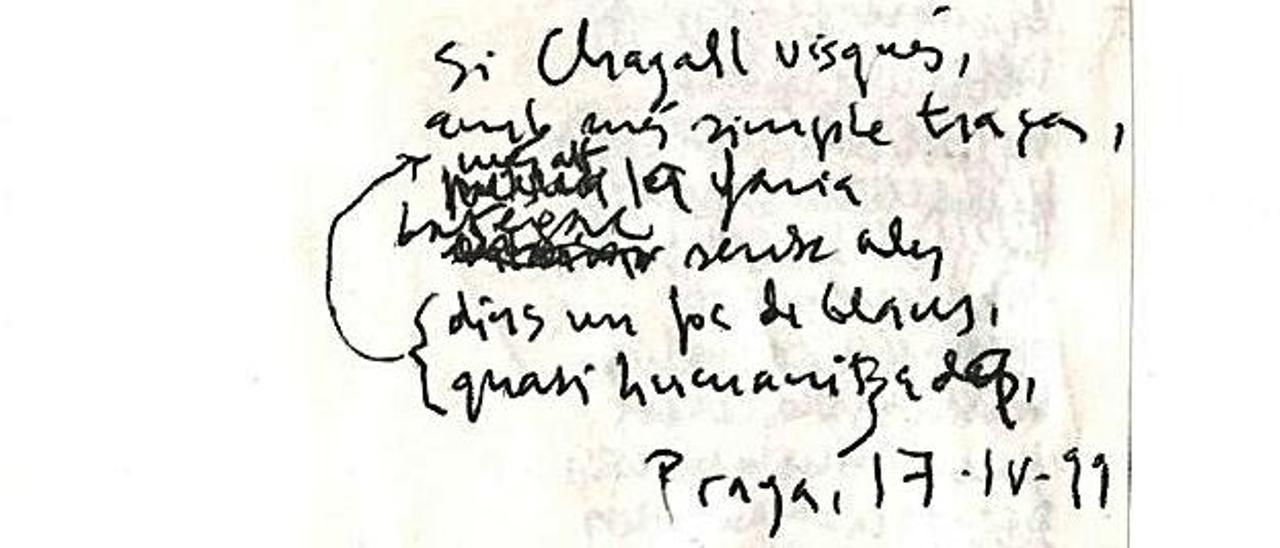 Si Chagall visqués,
amb més simple traça,
la faria
sense ales
dins un joc de blaus,
quasi humanitzada,
Praga, 17-IV-99